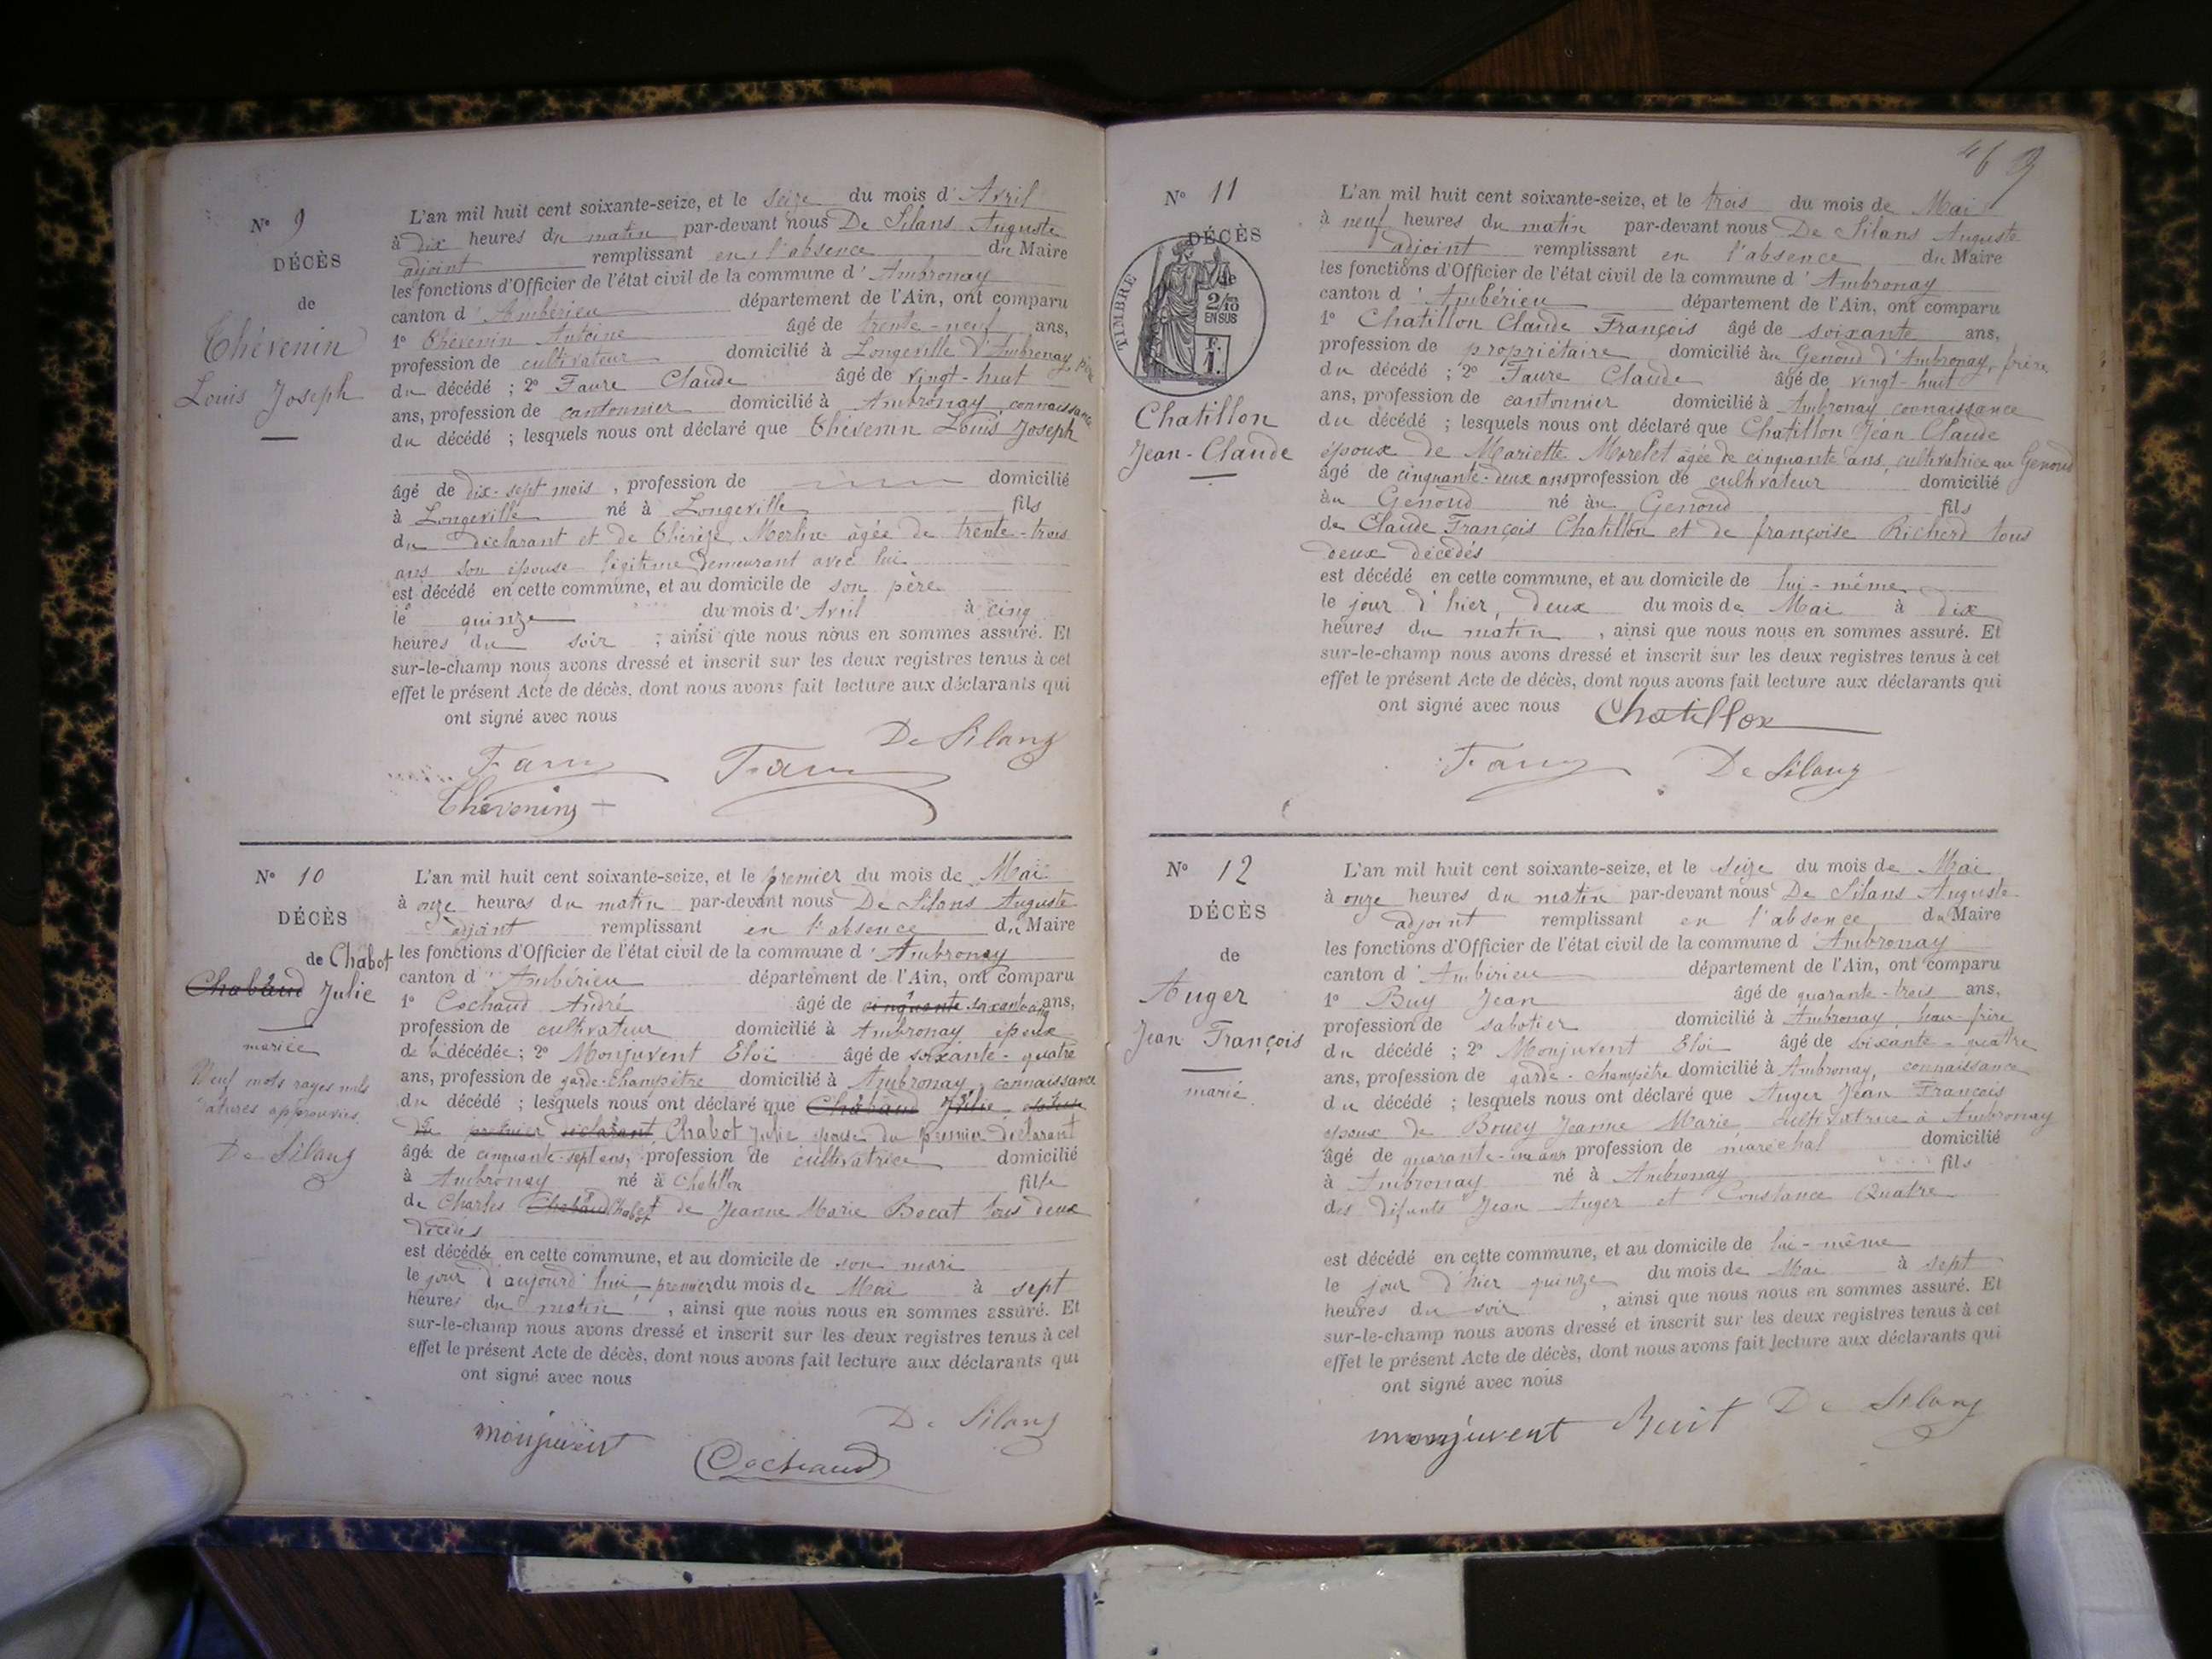 N° 9
DÉCÈS
de
Thévenin
Louis Joseph
L'an mil huit cent soixante-seize, et le seize du mois d'Avril
à dix heures du matin par-devant nous De Silans Auguste
adjoint remplissant en l'absence du Maire
les fonctions d'Officier de l'état civil de la commune d'Ambronay
canton d'Ambérieu département de l'Ain, ont comparu
1° Thévenin Antoine âgé de trente-neuf ans,
profession de cultivateur domicilié à Longeville d'Ambronay, père
du décédé ; 2° Faure Claude âgé de vingt-huit
ans, profession de cantonnier domicilié à Ambronay connaissance
du décédé ; lesquels nous ont déclaré que Thévenin Louis Joseph
âgé de dix-sept mois, profession de domicilié
à Longeville né à Longeville fils
du déclarant et de Thérèze Merlin âgée de trente-trois
ans son épouse légitime demeurant avec lui
est décédé en cette commune, et au domicile de son père
le quinze du mois d'Avril à cinq
heures du soir ; ainsi que nous nous en sommes assuré. Et
sur-le-champ nous avons dressé et inscrit sur les deux registres tenus à cet
effet le présent Acte de décès, dont nous avons fait lecture aux déclarants qui
ont signé avec nous
De Silans
Thévenin
N° 10
DÉCÈS
de Chabot
Chabaud Julie
mariée
Neuf mots rayés nuls
ratures approuvées.
De Silans
L'an mil huit cent soixante-seize, et le premier du mois de Mai
à onze heures du matin par-devant nous De Silans Auguste
adjoint remplissant en l'absence du Maire
les fonctions d'Officier de l'état civil de la commune d'Ambronay
canton d'Ambérieu département de l'Ain, ont comparu
1° Cochaud André âgé de cinquante soixante cinq ans,
profession de cultivateur domicilié à Ambronay époux
de la décédée ; 2° Monjuvent Eloi âgé de soixante-quatre
ans, profession de garde-champêtre domicilié à Ambronay, connaissance
du décédé ; lesquels nous ont déclaré que Chabaud Julie épouse
du premier déclarant Chabot Julie épouse du premier déclarant
âgée de cinquante-sept ans, profession de cultivatrice domicilié
à Ambronay né à Chatillon fille
de Charles Chabaud Chabot et de Jeanne Marie Bocat tous deux
décédés
est décédée en cette commune, et au domicile de son mari
le jour d'aujourd'hui, premier du mois de Mai à sept
heures du matin, ainsi que nous nous en sommes assuré. Et
sur-le-champ nous avons dressé et inscrit sur les deux registres tenus à cet
effet le présent Acte de décès, dont nous avons fait lecture aux déclarants qui
ont signé avec nous
De Silans
monjuvent Cochaud
N° 11
DÉCÈS
de
TIMBRE
2/10
EN SUS
F.
1.
Chatillon
Jean-Claude
L'an mil huit cent soixante-seize, et le trois du mois de Mai
à neuf heures du matin par-devant nous De Silans Auguste
adjoint remplissant en l'absence du Maire
les fonctions d'Officier de l'état civil de la commune d'Ambronay
canton d'Ambérieu département de l'Ain, ont comparu
1° Chatillon Claude François âgé de soixante ans,
profession de propriétaire domicilié au Genoud d'Ambronay, frère
du décédé ; 2° Faure Claude âgé de vingt-huit
ans, profession de cantonnier domicilié à Ambronay connaissance
du décédé ; lesquels nous ont déclaré que Chatillon Jean Claude
époux de Mariette Morelet agée de cinquante ans, cultivatrice au Genoud
âgé de cinquante-deux ans profession de cultivateur domicilié
au Genoud né au Genoud fils
de Claude François Chatillon et de françoise Richerd tous
deux décédés
est décédé en cette commune, et au domicile de lui-même
le jour d'hier, deux du mois de Mai à dix
heures du matin, ainsi que nous nous en sommes assuré. Et
sur-le-champ nous avons dressé et inscrit sur les deux registres tenus à cet
effet le présent Acte de décès, dont nous avons fait lecture aux déclarants qui
ont signé avec nous Chatillon
De Silans
N° 12
DÉCÈS
de
Auger
Jean François
marié
L'an mil huit cent soixante-seize, et le seize du mois de Mai
à onze heures du matin par-devant nous De Silans Auguste
adjoint remplissant en l'absence du Maire
les fonctions d'Officier de l'état civil de la commune d'Ambronay
canton d'Ambérieu département de l'Ain, ont comparu
1° Buy Jean âgé de quarante-trois ans,
profession de sabotier domicilié à Ambronay, beau-frère
du décédé ; 2° Monjuvent Eloi âgé de soixante-quatre
ans, profession de garde-champêtre domicilié à Ambronay, connaissance
du décédé ; lesquels nous ont déclaré que Auger Jean François
époux de Bouey Jeanne Marie cultivatrice à Ambronay
âgé de quarante-un ans profession de maréchal domicilié
à Ambronay né à Ambronay fils
des défunts Jean Auger et Constance Quatre
est décédé en cette commune, et au domicile de lui-même
le jour d'hier quinze du mois de Mai à sept
heures du soir, ainsi que nous nous en sommes assuré. Et
sur-le-champ nous avons dressé et inscrit sur les deux registres tenus à cet
effet le présent Acte de décès, dont nous avons fait lecture aux déclarants qui
ont signé avec nous
monjuvent Buit De Silans